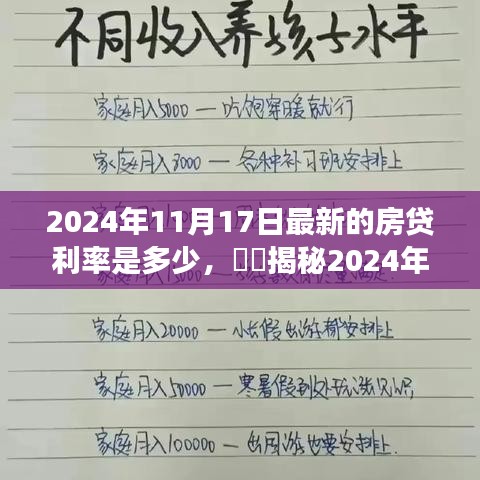 不同收入养孩子水平
家庭月入5000—吃饱穿暖就行
家庭月入8000—各种补习班安排上
2024年11月17日最新的房贷
利率是多少，揭秘2024年
家庭月入20000—小长假出游都安排上
家庭月入50000—寒暑假到处玩涨见识
家庭月入100000—出国游也要安排上.